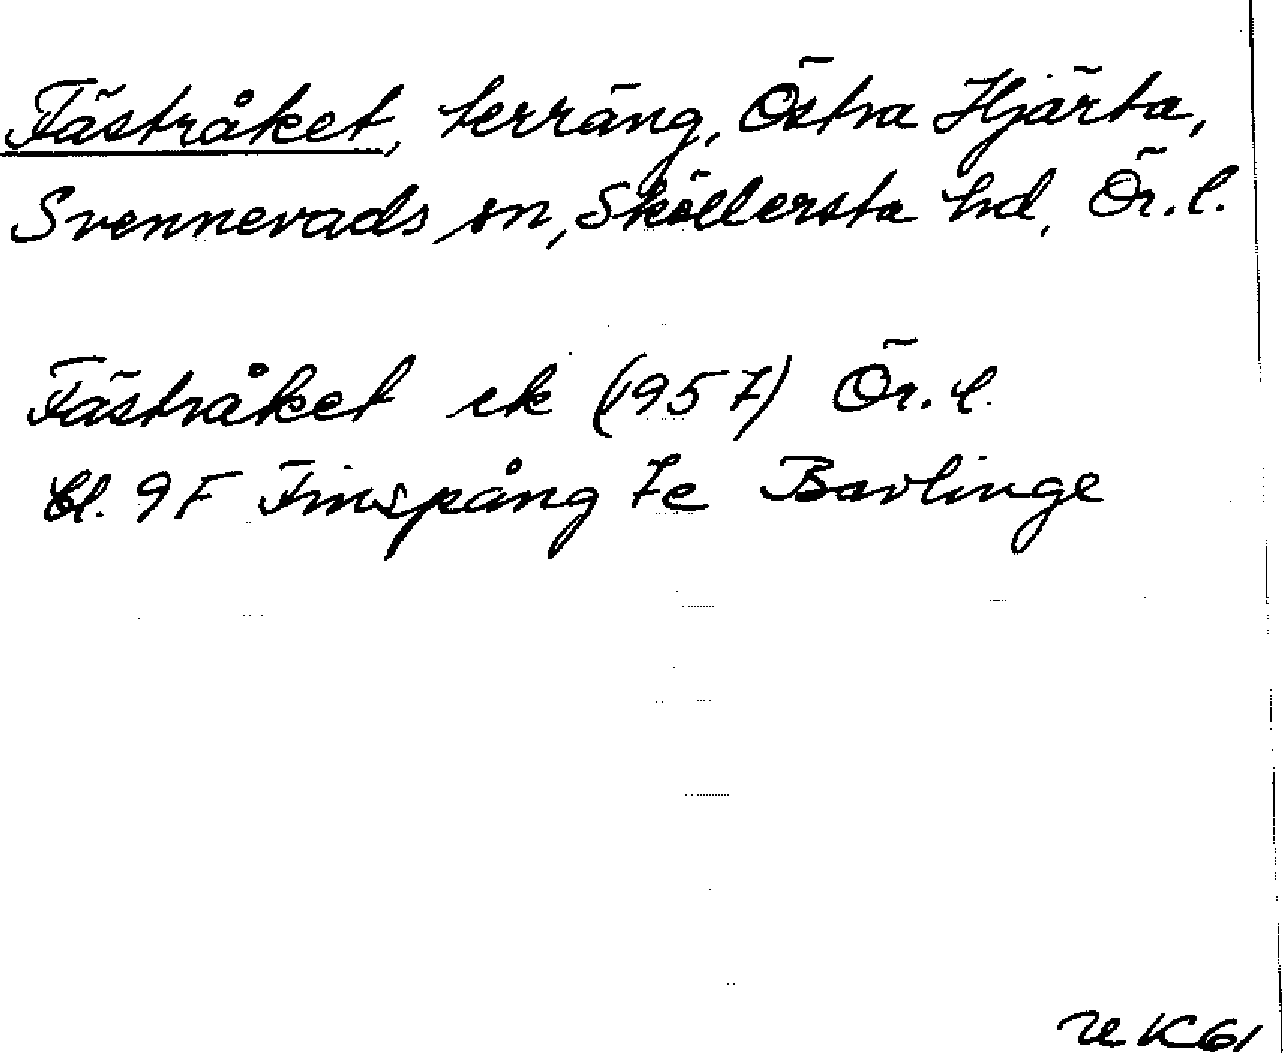 Fästråket, terräng, Östra Hjärta,
Svennevads sn, Sköllersta hd, Ör. l.
Fästråket ek (1957) Ör. l.
bl. 9F Finspång 7e Bavlinge
UK61